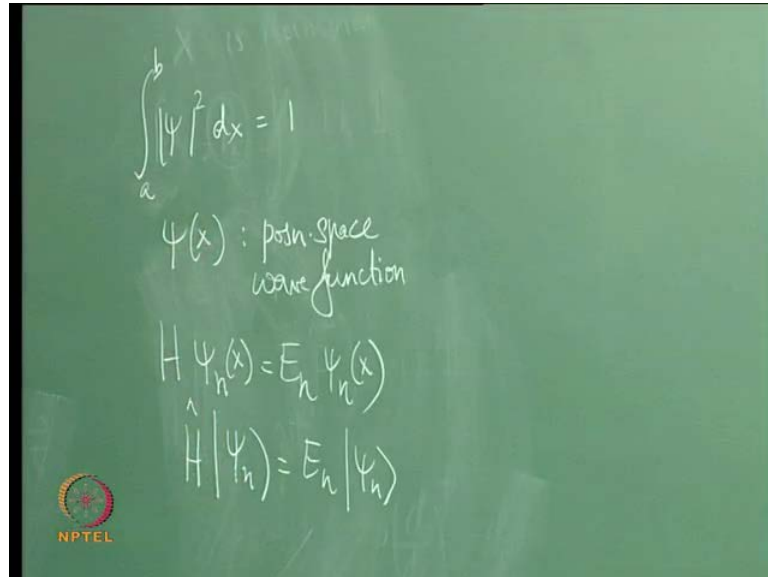 X is
∫ₐᵇ |ψ|² dx = 1
ψ(x) : posn. space
wave function
H ψₙ(x) = Eₙ ψₙ(x)
Ĥ |ψₙ⟩ = Eₙ |ψₙ⟩
NPTEL